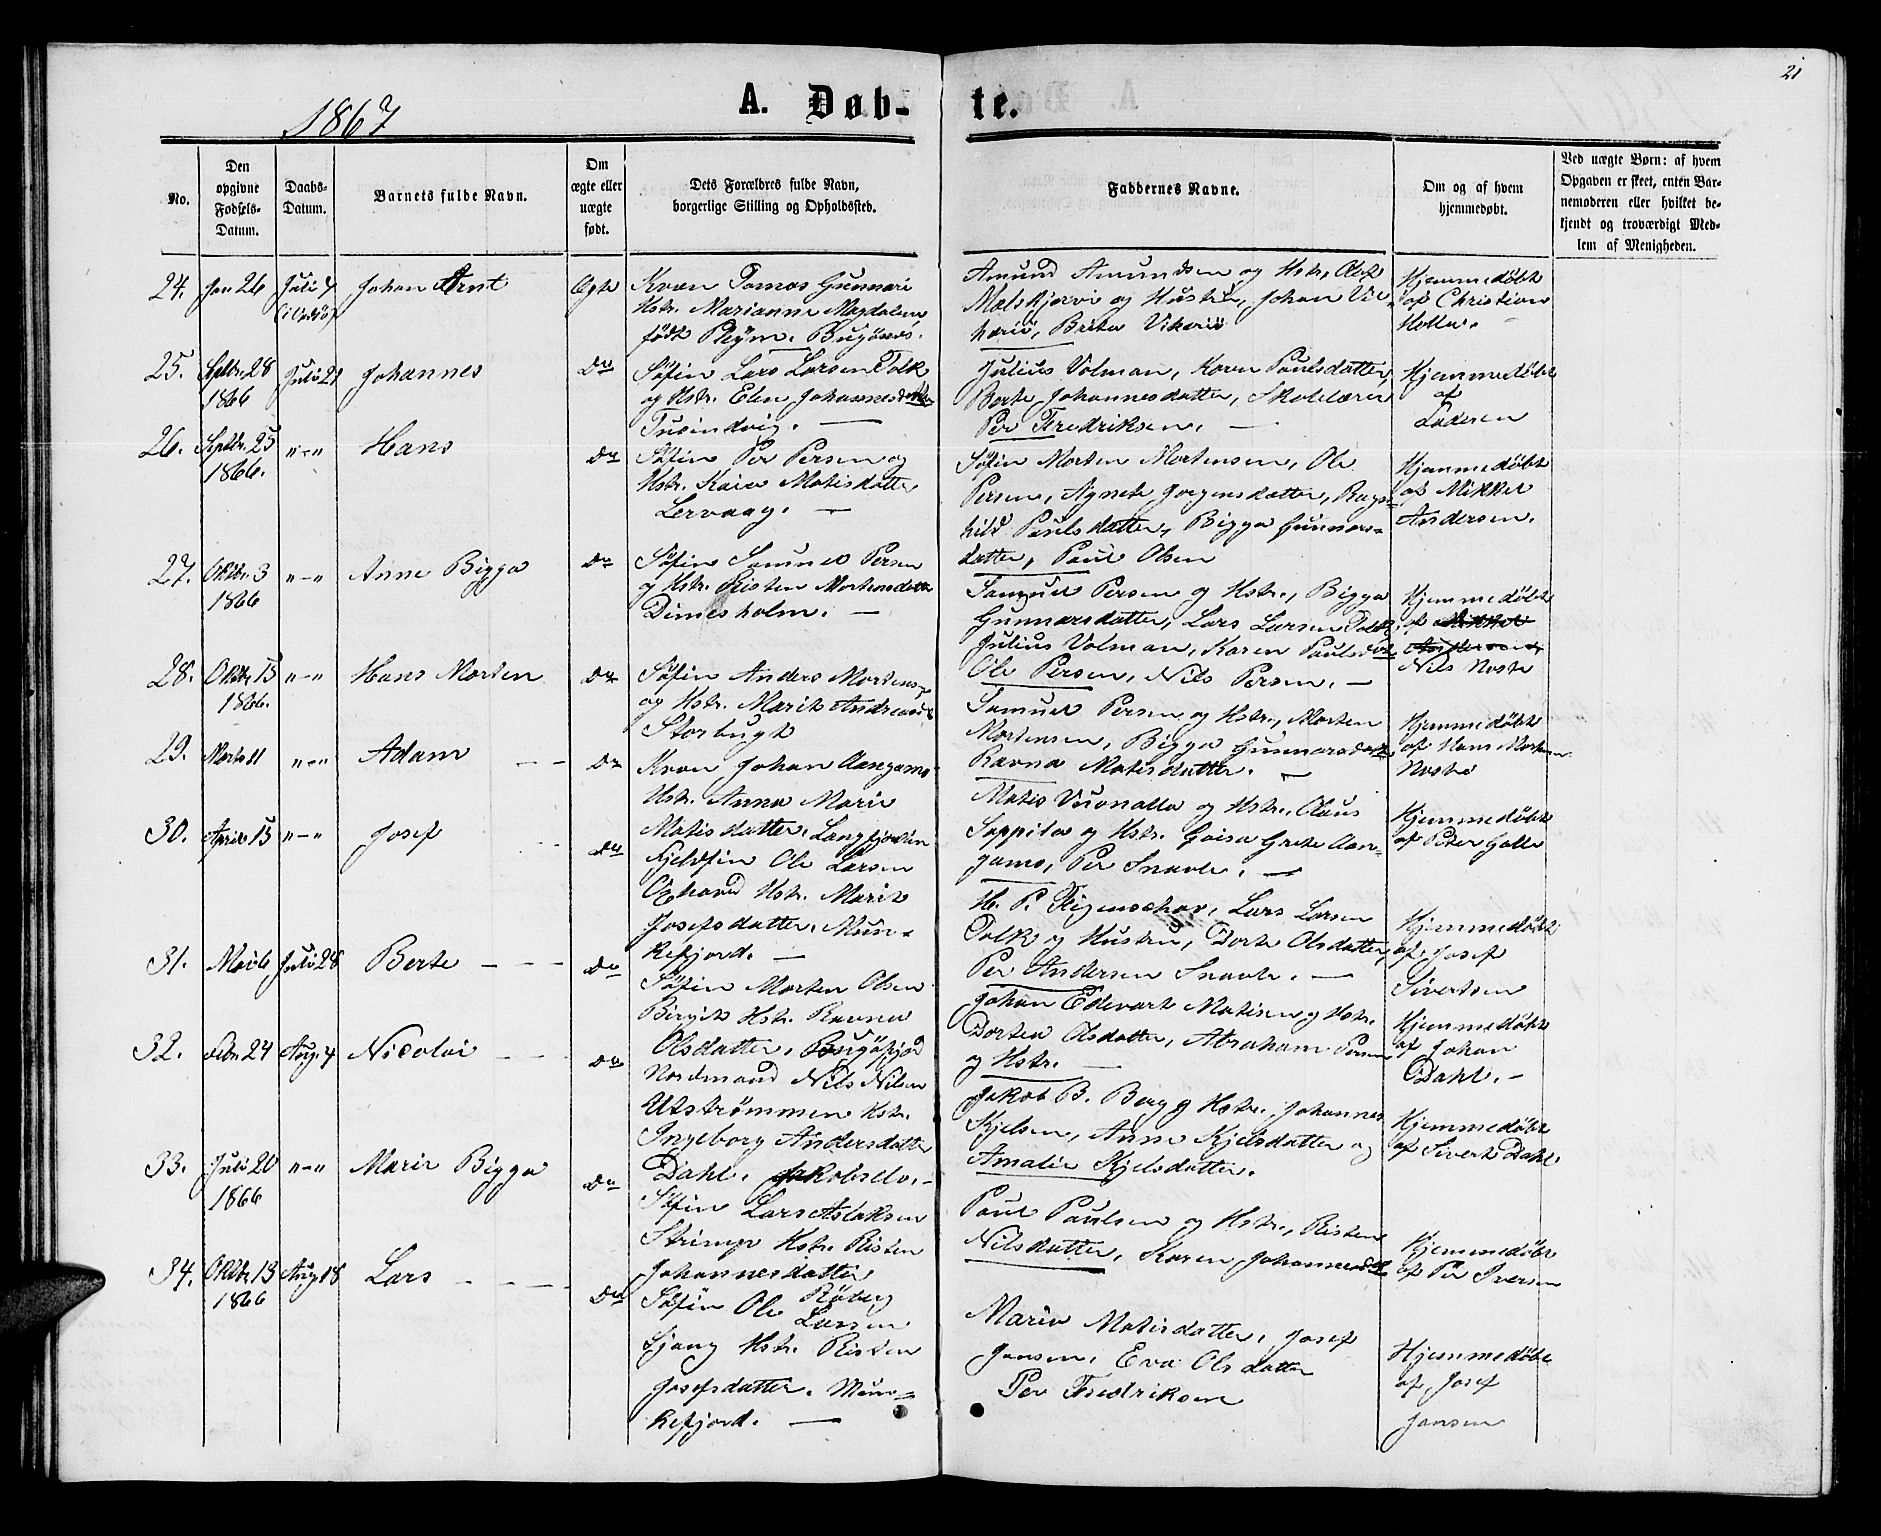 21
1867
A. Døb-
te.
No.
Den opgivne Fødsels-Datum.
Daabs-Datum.
Barnets fulde Navn.
Om ægte eller uægte født.
Dets Forældres fulde Navn,
borgerlige Stilling og Opholdssted.
Faddernes Navne.
Om og af hvem
hjemmedøbt.
Ved uægte Børn: af hvem
Opgaven er skeet, enten Bar-
nemoderen eller hvilket be-
kjendt og troværdigt Med-
lem af Menigheden.
24. Jan 26 Juli 7 Johan Arnt Ægte
Kvæn Tomas Gunnari
Hstr. Marianne Magdalene
født Pleym. Bugönes.
Amund Amundsen og Hstr., Olof
Malskjærvi og Hustru, Johan Vik-
hario, Brita Vikario
Hjemmedøbt
af Christian
Holter.
25. Septbr. 28 1866 Juli 21 Johannes Do
Söfin Lars Larsen Tolk
og Hstr. Elen Johannesdatter
Tusindvig. —
Julius Volman, Karen Paulsdatter,
Berte Johannesdatter, Skolelærer
Per Fredriksen. —
Hjemmedøbt
af
Ladesen
26. Septbr. 25 1866. "—" Hans Do
Söfin Per Persen og
Hstr. Kaia Matisdatter
Lervaag. —
Söfin Morten Mortensen, Ole
Persen, Agnete Jörgensdatter, Ragn-
hild Paulsdatter, Bigga Gunnars-
datter, Paul Olsen
Hjemmedøbt
af Mikkel
Andersen.
27. Oktbr. 3 1866 "—" Anne Bigga Do
Söfin Samuel Persen
og Hstr. Risten Mortensdatter
Dimesholm. —
Samuel Persen og Hstr., Bigga
Gunnarsdatter, Lars Larsen Tolk,
Julius Volman, Karen Paulsdatter
Hjemmedøbt
af Mikkel
Andersen
Nils Noste
28. Oktbr. 15 1866. "—" Hans Morten Do
Söfin Anders Mortens.
og Hstr. Marit Andreasd.
Storbugt
Ole Persen, Nils Persen. —
Samuel Persen og Hstr., Morten
Mortensen, Bigga Gunnarsdatter
Ravna Matisdatter. —
Hjemmedøbt
af Hans Morten
Nosta
29. Marts 11 "—" Adam — — Do
Kvæn Johan Aangamo
Hstr. Anna Marie
Matisdatter. Langfjorden
Matis Vuonalla og Hstr. Olaus
Seppila og Hstr. Gaisa Grete Aan-
gamo, Per Snavle. —
Hjemmedøbt
af Peter Galle
30. April 15 "—" Josef Do
Fjeldfin Ole Larsen
Hstr. Marit
Josefsdatter. Mun-
kefjord. —
H. P. Figenschou, Lars Larsen
Tolk og Hustru, Dorte Olsdatter,
Per Andersen Snavle. —
Hjemmedøbt
af Josef
Sivertsen
31. Mai 6 Juli 28 Berte — — — Do
Söfin Morten Olsen
Bergit Hstr. Ravna
Olsdatter. Bugöfjord
Johan Edevart Matisen og Hstr.
Dortea Olsdatter, Abraham Persen
og Hstr. —
Hjemmedøbt
af Johan
Dahl. —
32. Febr. 24 Aug. 4 Nicolai — — Do
Nordmand Nils Nilsen
Utströmmen Hstr.
Ingeborg Andersdatter
Dahl. Jakobselv. —
Jakob B. Berg og Hstr. Johannes
Kjelsen, Anne Kjelsdatter og
Amalie Kjelsdatter.
Hjemmedøbt
af Sivert Dahl
33. Juli 20 1866 "—" Marie Bigga Do
Söfin Lars Aslaksen
Strimp Hstr. Risten
Johannesdatter
Röberg
Paul Paulsen og Hstr., Risten
Nilsdatter, Karen Johannesd.
Hjemmedøbt
af Per Iversen
34. Oktbr. 13 1866 Aug 18 Lars — — — Do
Söfin Ole Larsen
Hstr. Risten
Josefsdatter. Mun-
kefjord. —
Maria Matisdatter, Josef
Jansen, Eva Olsdatter
Per Fredriksen
Hjemmedøbt
af Josef
Jansen